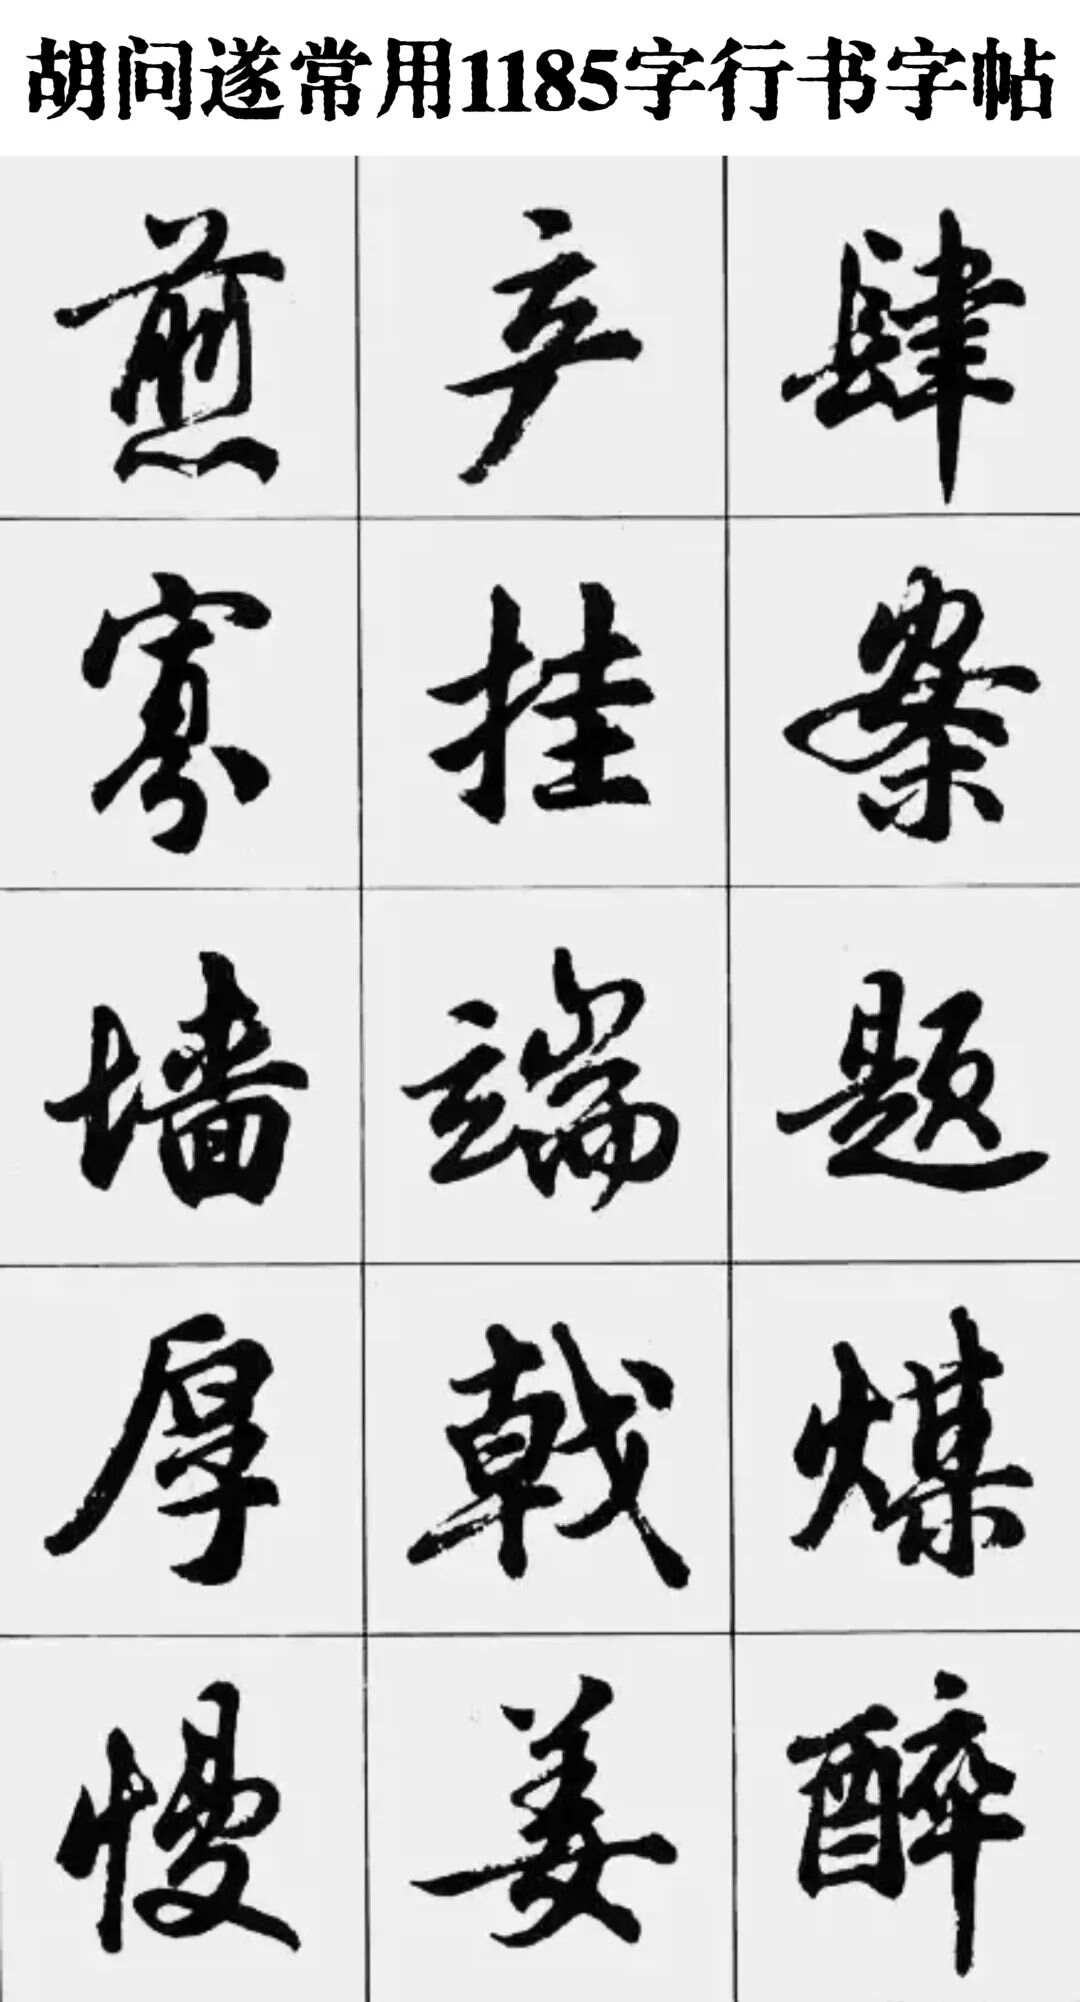 胡问遂常用1185字行书字帖
煎产肆
寡挂案
墙端题
厚戟煤
慢姜醉